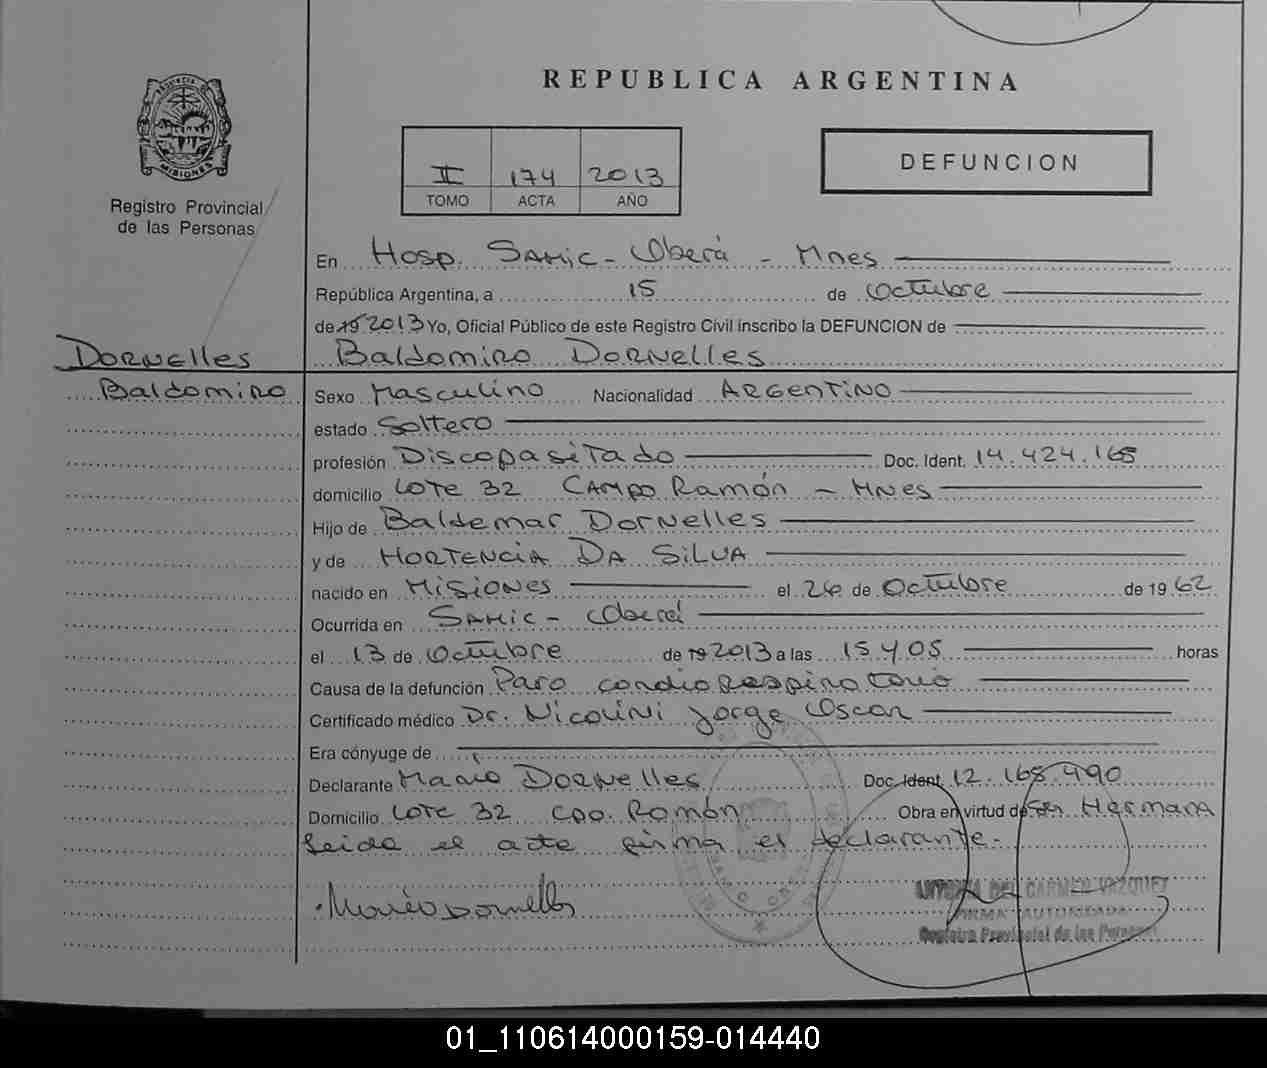 REPUBLICA ARGENTINA
MISIONES
Registro Provincial
de las Personas
II 174 2013
TOMO ACTA AÑO
DEFUNCION
En Hosp. SAMIC - Oberá - Mnes
República Argentina, a 15 de Octubre
de 19 2013 Yo, Oficial Público de este Registro Civil inscribo la DEFUNCION de
Dornelles Baldomiro Dornelles
Baldomiro Sexo Masculino Nacionalidad ARGENTINO
estado Soltero
profesión Discapasitado Doc. Ident. 14.424.168
domicilio LOTE 32 CAMPO Ramón - MNes
Hijo de Baldemar Dornelles
y de HORTENCIA DA SILVA
nacido en Misiones el 26 de Octubre de 1962
Ocurrida en SAMIC - Oberá
el 13 de Octubre de 19 2013 a las 15 y 05 horas
Causa de la defunción Paro cardiorespiratorio
Certificado médico Dr. Nicolini Jorge Oscar
Era cónyuge de
Declarante Mario Dornelles Doc. Ident. 12.168.490
Domicilio LOTE 32 Cpo. Ramón Obra en virtud de Ser Hermano
Leida el acta firma el declarante.
Mario Dornelles
DEL CARMEN VAZQUEZ
FIRMA AUTORIZADA
Registro Provincial de las Personas
01_110614000159-014440